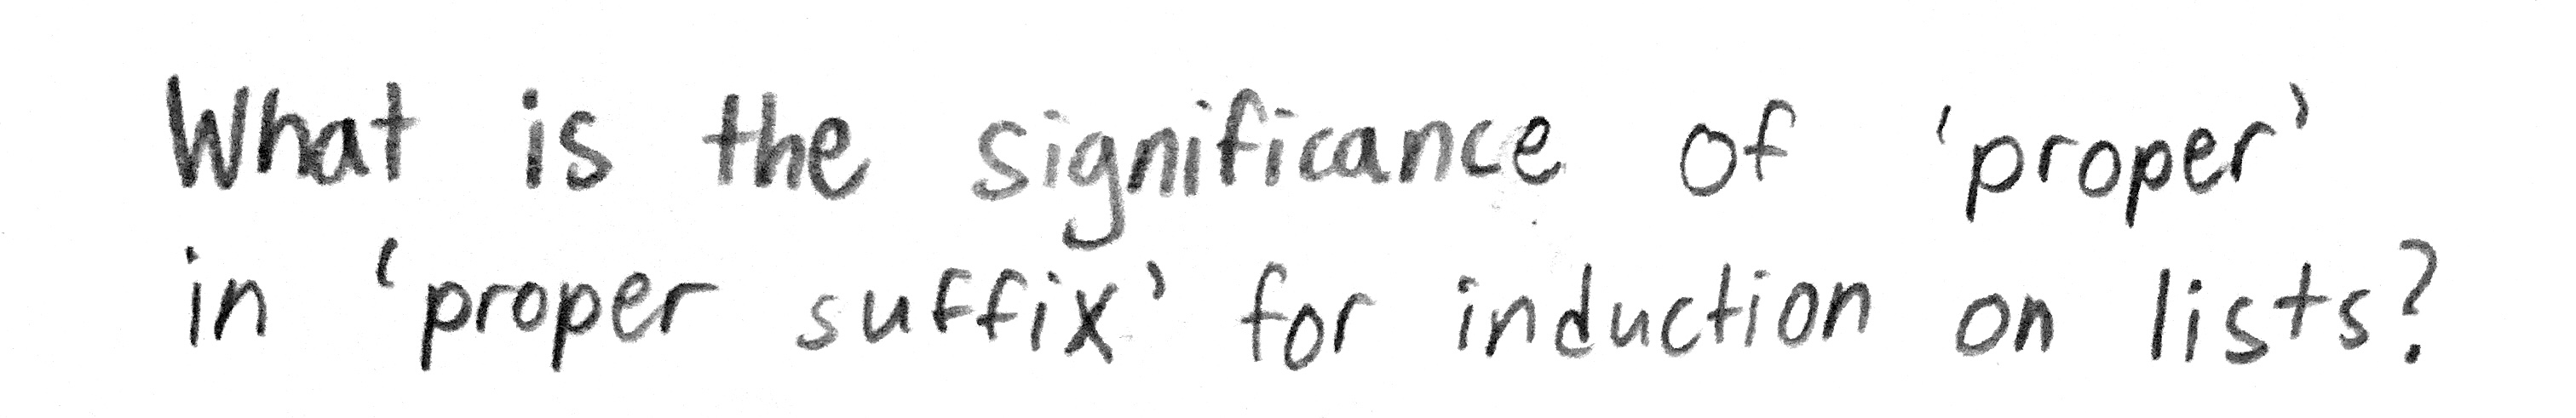 What is the significance of 'proper'
in 'proper suffix' for induction on lists?